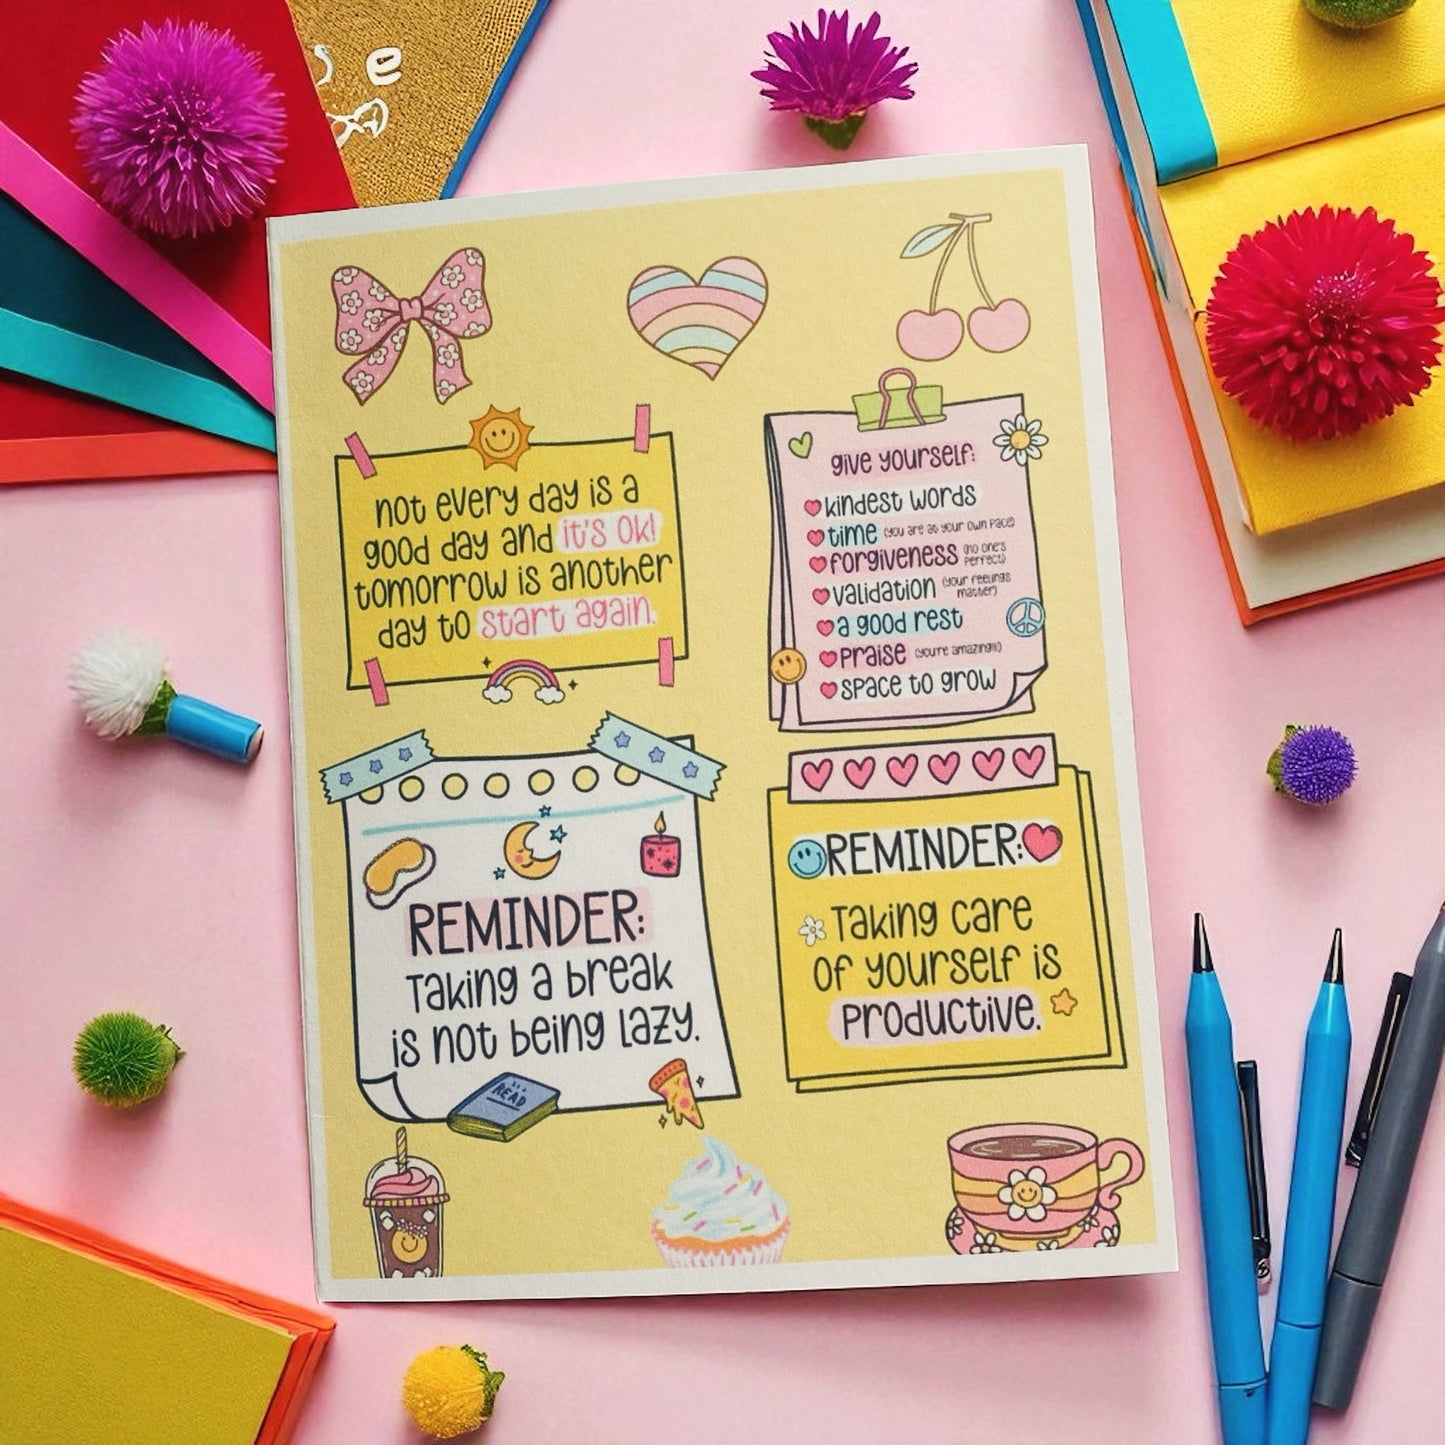 not every day is a
good day and it's ok!
tomorrow is another
day to start again.
give yourself:
kindest words
time (you are at your own pace)
forgiveness (no one's
perfect)
validation (your feelings
matter)
a good rest
praise (you're amazing!!!)
space to grow
REMINDER:
Taking a break
is not being lazy.
READ
REMINDER:
Taking care
of yourself is
productive.